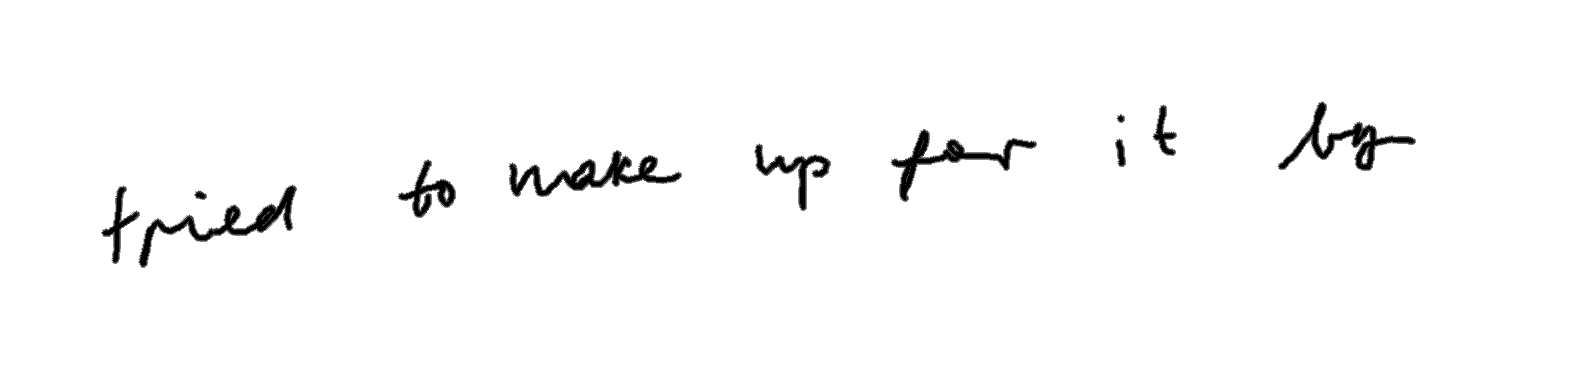 tried to make up for it by